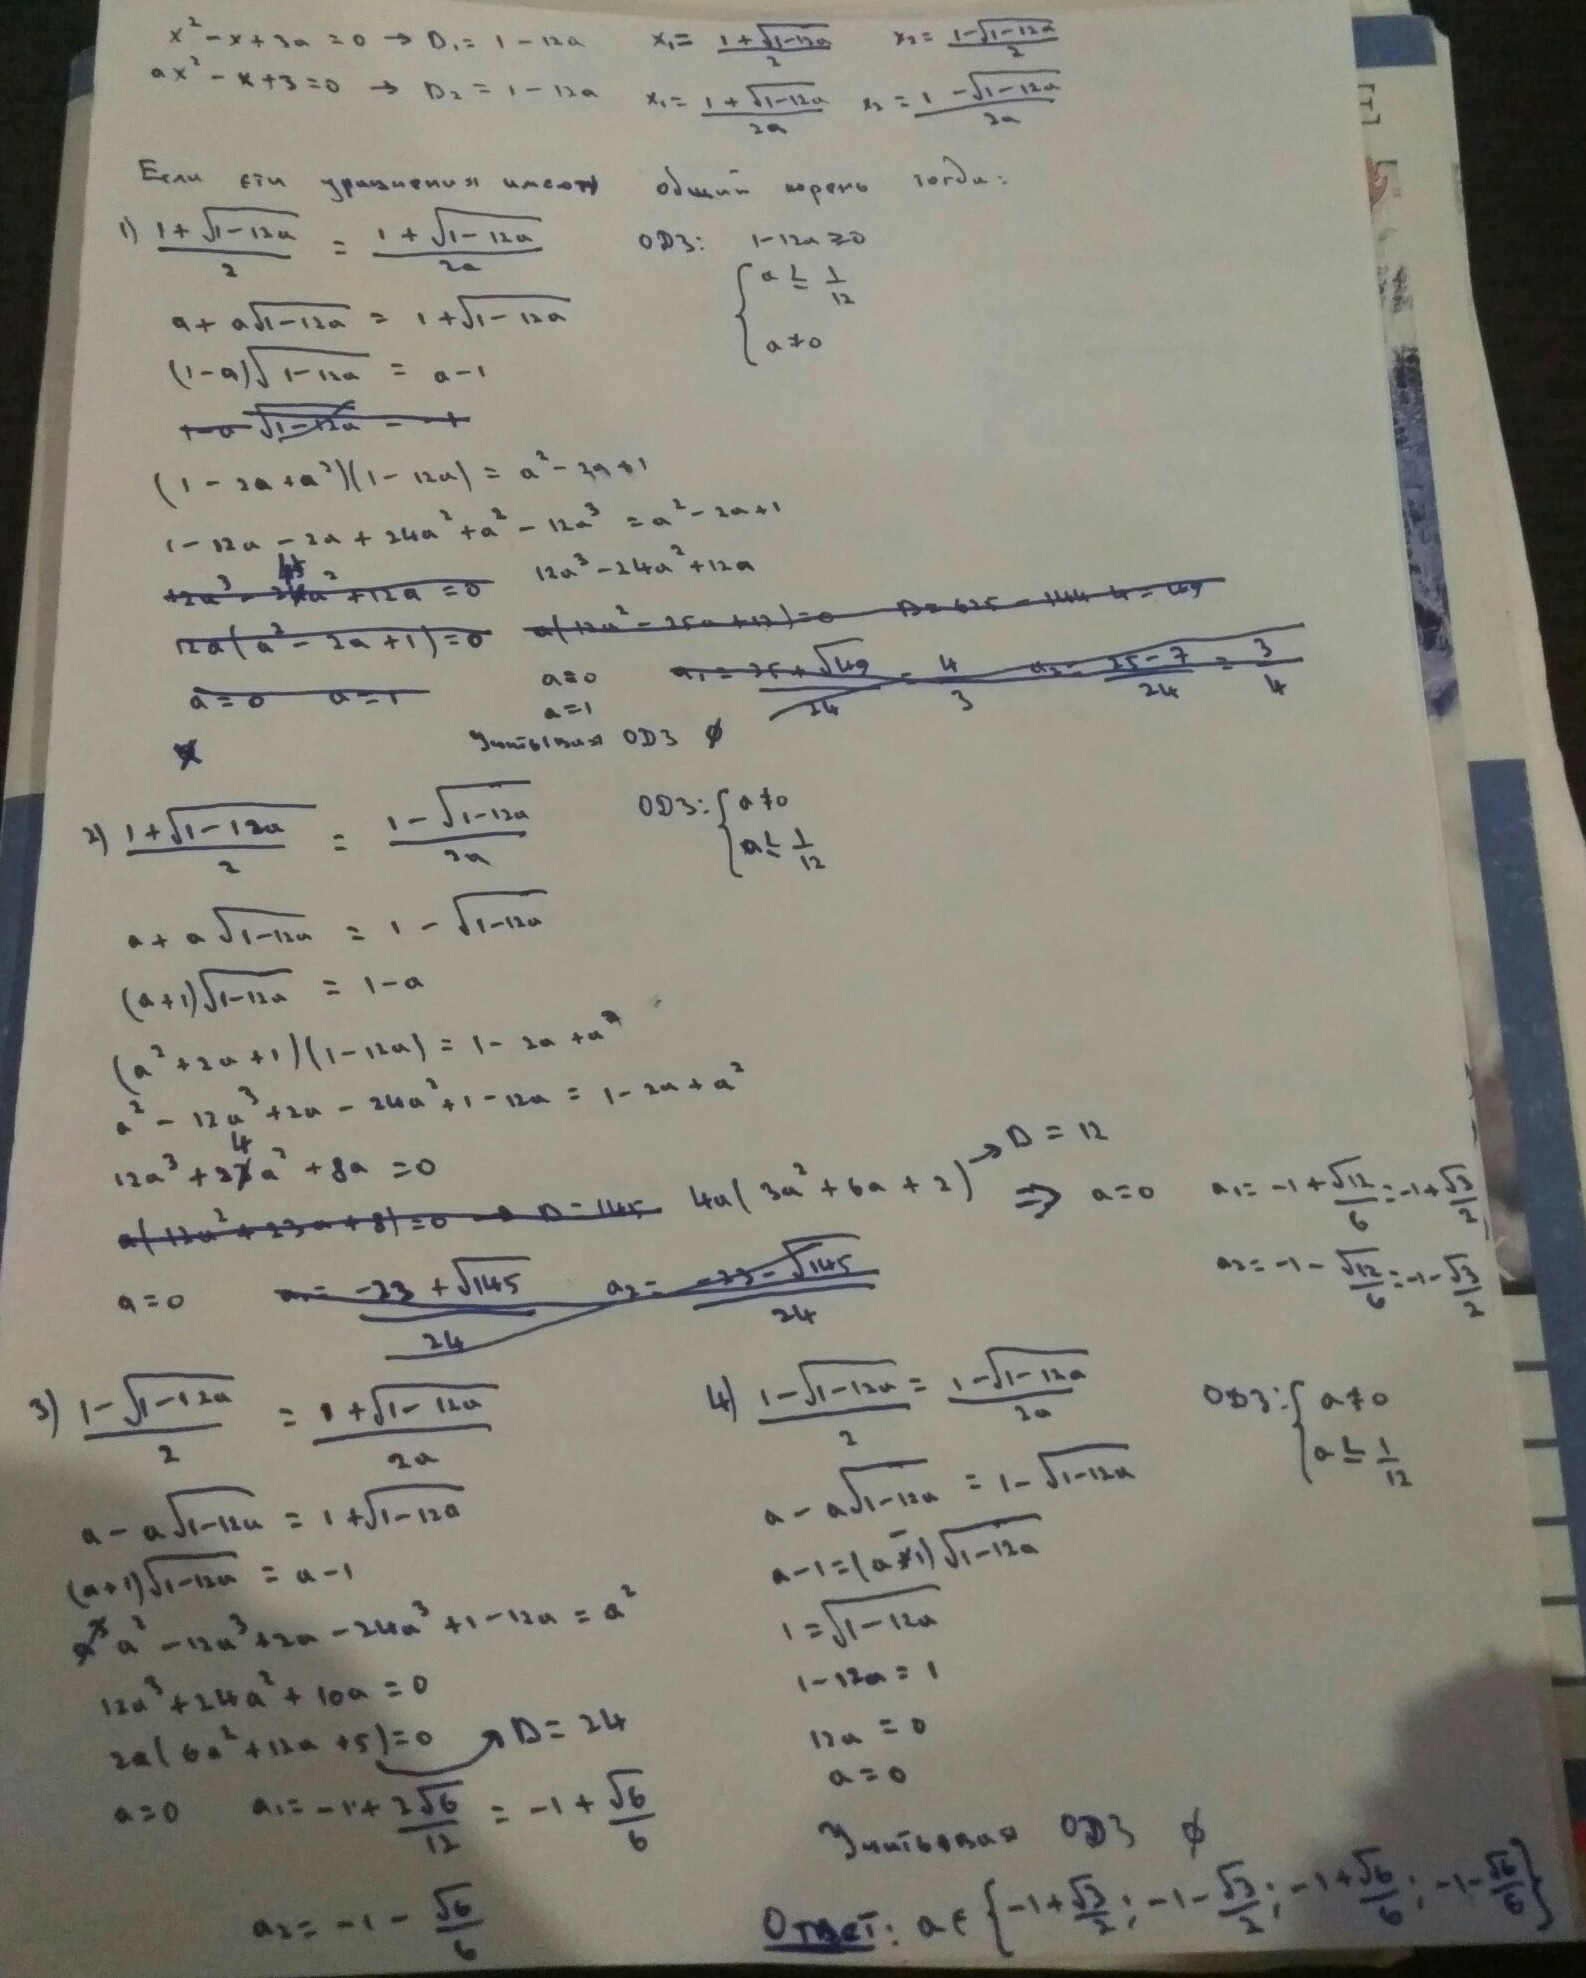 x² - x + 3a = 0 → D₁ = 1 - 12a x₁ = (1 + √(1-12a))/2 x₂ = (1 - √(1-12a))/2
ax² - x + 3 = 0 → D₂ = 1 - 12a x₁ = (1 + √(1-12a))/2a x₂ = (1 - √(1-12a))/2a
Если эти уравнения имеют общий корень тогда:
1) (1 + √(1-12a))/2 = (1 + √(1-12a))/2a ОДЗ: 1-12a ≥ 0
{ a ≤ 1/12
a ≠ 0
a + a√(1-12a) = 1 + √(1-12a)
(1-a)√(1-12a) = a-1
(1 - 2a + a²)(1 - 12a) = a² - 2a + 1
1 - 12a - 2a + 24a² + a² - 12a³ = a² - 2a + 1
12a³ - 24a² + 12a = 0 12a³ - 24a² + 12a
12a(a² - 2a + 1) = 0 a(12a² - 25a + 12) = 0 D = 625 - 144·4 = 49
a = 0 a = 1 a = 0 a₁ = (25 + √49)/24 = 4/3 a₂ = (25 - 7)/24 = 3/4
a = 1
Учитывая ОДЗ ∅
2) (1 + √(1-12a))/2 = (1 - √(1-12a))/2a ОДЗ: { a ≠ 0
a ≤ 1/12
a + a√(1-12a) = 1 - √(1-12a)
(a+1)√(1-12a) = 1-a
(a² + 2a + 1)(1 - 12a) = 1 - 2a + a²
a² - 12a³ + 2a - 24a² + 1 - 12a = 1 - 2a + a²
12a³ + 24a² + 8a = 0
a(12a² + 23a + 8) = 0 → D = 145 4a(3a² + 6a + 2) → D = 12 ⇒ a = 0 a₁ = -1 + √12/6 = -1 + √3/2
a = 0 a₁ = (-23 + √145)/24 a₂ = (-23 - √145)/24 a₂ = -1 - √12/6 = -1 - √3/2
3) (1 - √(1-12a))/2 = (1 + √(1-12a))/2a
a - a√(1-12a) = 1 + √(1-12a)
(a+1)√(1-12a) = a-1
a² - 12a³ + 2a - 24a² + 1 - 12a = a²
12a³ + 24a² + 10a = 0
2a(6a² + 12a + 5) = 0 → D = 24
a = 0 a₁ = -1 + 2√6/12 = -1 + √6/6
a₂ = -1 - √6/6
4) (1 - √(1-12a))/2 = (1 - √(1-12a))/2a ОДЗ: { a ≠ 0
a ≤ 1/12
a - a√(1-12a) = 1 - √(1-12a)
a-1 = (a-1)√(1-12a)
1 = √(1-12a)
1 - 12a = 1
12a = 0
a = 0
Учитывая ОДЗ ∅
Ответ: a ∈ {-1 + √3/2; -1 - √3/2; -1 + √6/6; -1 - √6/6}